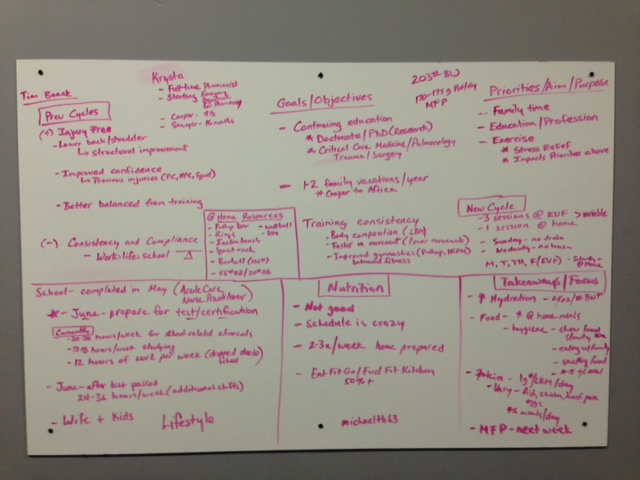 Tim Baack
Prev Cycles
(+) Injury Free
- Lower back/shoulder
↳ structural improvement
- Improved confidence
↳ Previous injuries
- Better balanced from training
(-) Consistency and Compliance
- Work:life:school Δ
Krysta
- Full-time Pharmacist
- Starting
- Cooper - 4½
- Sawyer -
@ Home Resources
- Pullup bar
- Rings
- wallball
- squat rack
- Barbell
Goals/Objectives
- Continuing education
* Doctorate/PhD (Research)
* Critical Care Medicine/Pulmonology
Trauma/Surgery
- 1-2 family vacations/year
* Cooper to Africa
Training consistency
- Body composition (LBM)
- Faster in movement (Power movements)
- Improved gymnastics
203# BW
170-175g
MFP
Priorities/Aim/Purpose
- Family time
- Education/Profession
- Exercise
* Stress Relief
* Impacts Priorities above
New Cycle
- 3 sessions @ EUF > variable
- 1 session @ home
- Sunday - no
- Wednesday - no
School - completed in May (Acute Care
Nurse Practitioner)
* - June - prepare for test/certification
Currently
hours/week for school-related clinicals
hours/week studying
- 12 hours of work per week (dropped due to
school)
- June - after test passed
24-36 hours/week (additional shifts)
- Wife + Kids
Lifestyle
Nutrition
- Not good
- Schedule is crazy
- 2-3x/week home prepared
- Eat Fit Go/Fuel Fit Kitchen
50%+
michaeltb63
Takeaways/Focus
- ↑ Hydration - BW
- Food - ↑ @ home meals
- hygiene - chew food
eating w/family
smelling food
- Protein - 1g/LBM/day
- Vary - fish, chicken, beef, pork
eggs
meals/day
- MFP - next week